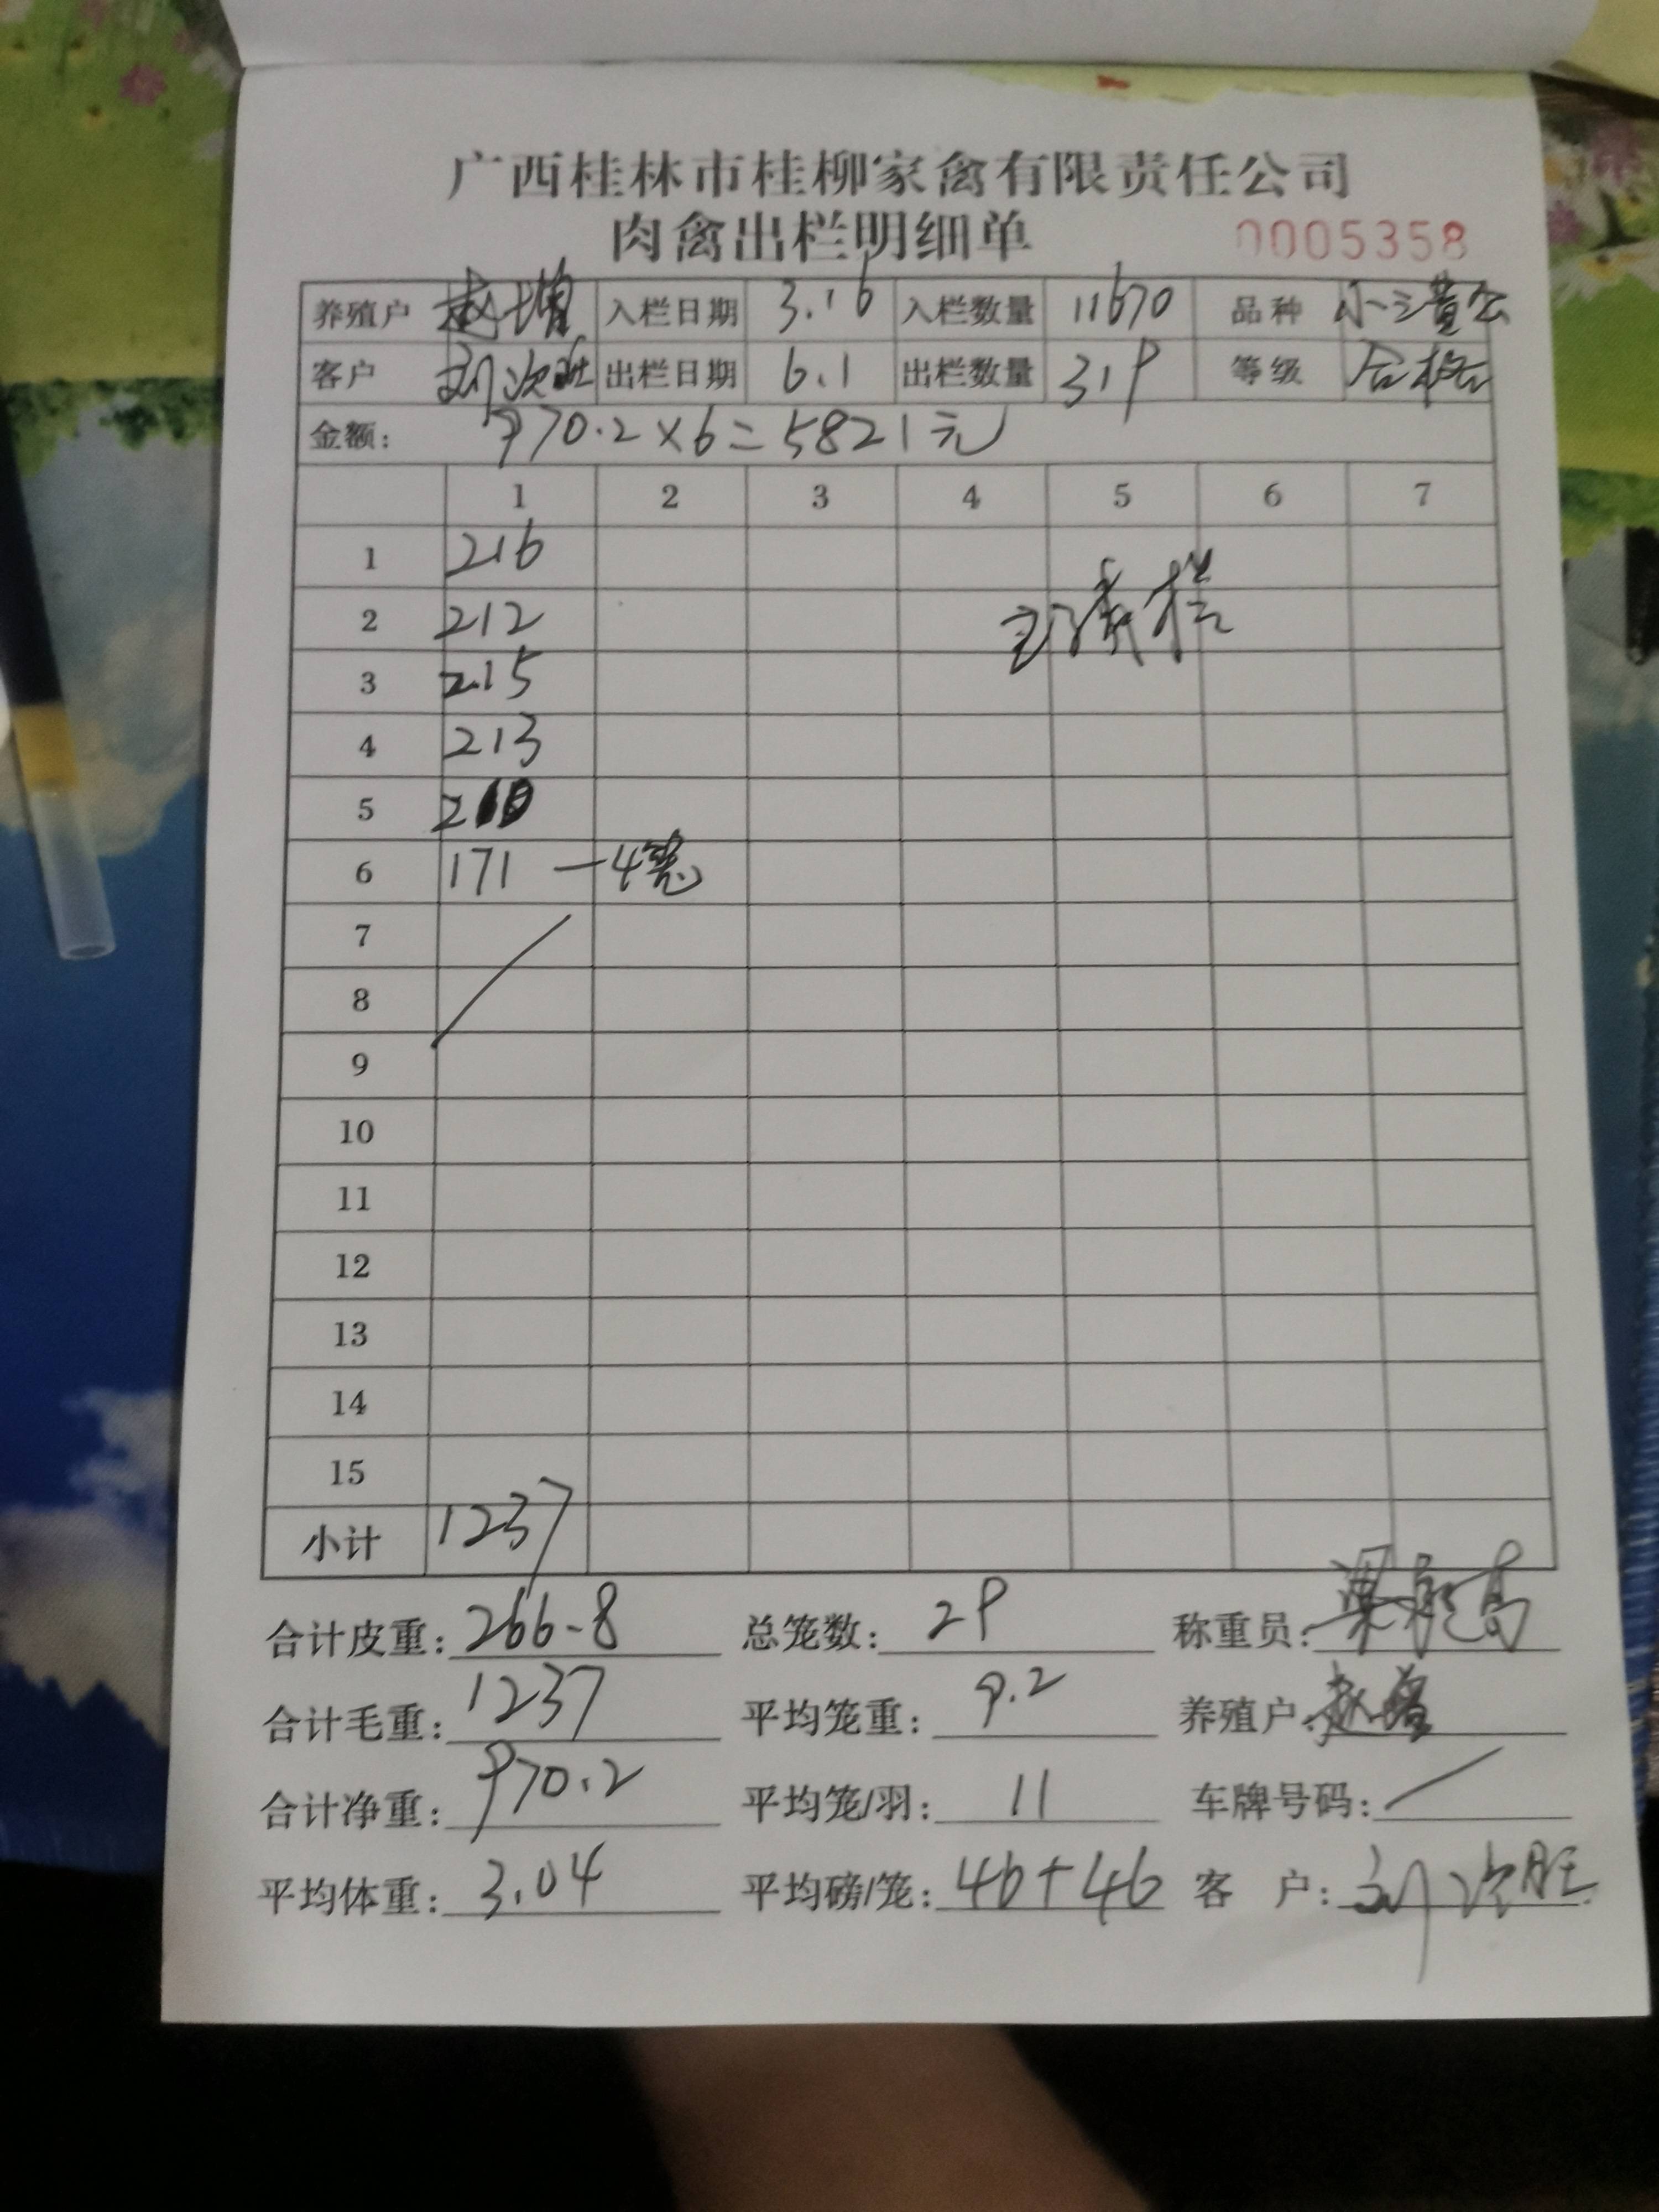 广西桂林市桂柳家禽有限责任公司
肉禽出栏明细单 0005358
养殖户 赵增 入栏日期 3.16 入栏数量 11670 品种 小三黄公
客户 刘次胜 出栏日期 6.1 出栏数量 319 等级 合格
金额: 970.2×6=5821元
1 2 3 4 5 6 7
1 216
2 212
3 215
4 213
5 210
6 171 —4笼
7
8
9
10
11
12
13
14
15
小计 1237
合计皮重: 266.8 总笼数: 29 称重员:
合计毛重: 1237 平均笼重: 9.2 养殖户: 赵增
合计净重: 970.2 平均笼/羽: 11 车牌号码: /
平均体重: 3.04 平均磅/笼: 46+46 客户: 刘次胜